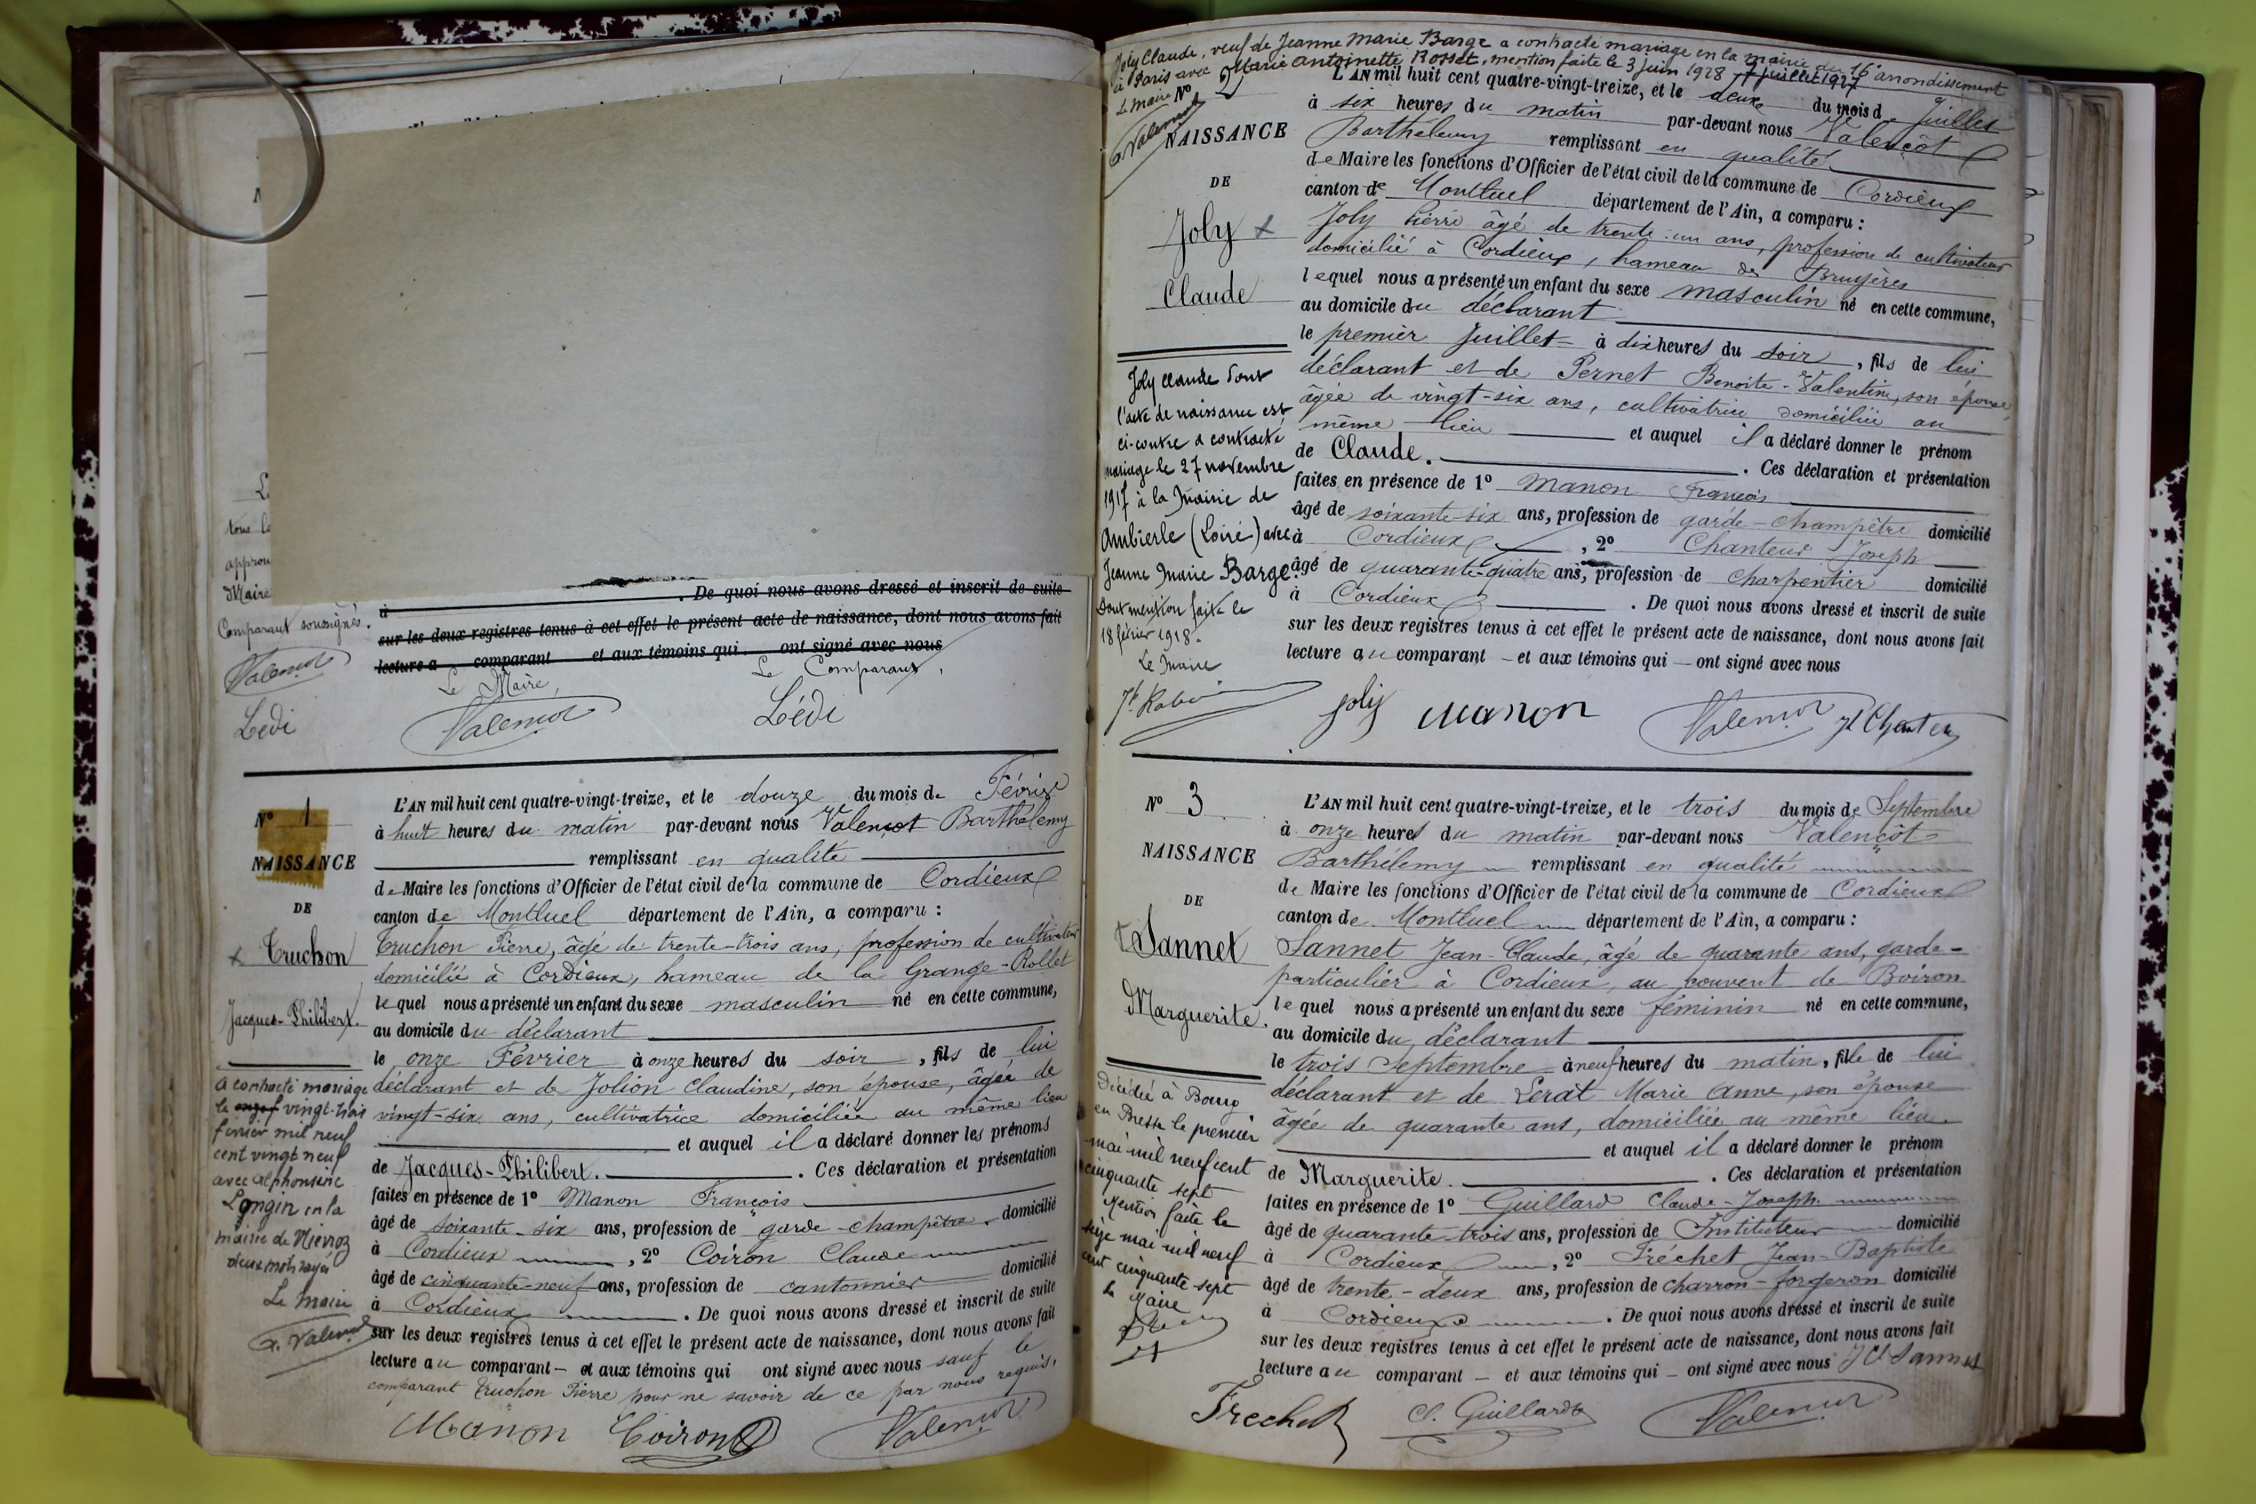 à . De quoi nous avons dressé et inscrit de suite
sur les deux registres tenus à cet effet le présent acte de naissance, dont nous avons fait
lecture a comparant et aux témoins qui ont signé avec nous
Le Maire, Le Comparant,
Valencot Lédi
Maire
Comparant soussignés.
Valencot
Lédi
N° 1
NAISSANCE
DE
Truchon
Jacques-Philibert.
a contracté mariage
le onze vingt-trois
février mil neuf
cent vingt neuf
avec Alphonsine
Longin en la
mairie de Niévroz
deux mots rayés
Le Maire
Valencot
L'AN mil huit cent quatre-vingt-treize, et le douze du mois de Février
à huit heures du matin par-devant nous Valencot Barthélemy
remplissant en qualité
de Maire les fonctions d'Officier de l'état civil de la commune de Cordieux
canton de Montluel département de l'Ain, a comparu :
Truchon Pierre, âgé de trente-trois ans, profession de cultivateur
domicilié à Cordieux, hameau de la Grange-Rollet
lequel nous a présenté un enfant du sexe masculin né en cette commune,
au domicile du déclarant
le onze Février à onze heures du soir, fils de lui
déclarant et de Jolion Claudine, son épouse, âgée de
vingt-six ans, cultivatrice domiciliée au même lieu
et auquel il a déclaré donner les prénoms
de Jacques-Philibert. . Ces déclaration et présentation
faites en présence de 1° Manon François
âgé de soixante-six ans, profession de garde-champêtre domicilié
à Cordieux , 2° Coiron Claude
âgé de cinquante-neuf ans, profession de cantonnier domicilié
à Cordieux . De quoi nous avons dressé et inscrit de suite
sur les deux registres tenus à cet effet le présent acte de naissance, dont nous avons fait
lecture au comparant – et aux témoins qui ont signé avec nous sauf le
comparant Truchon Pierre pour ne savoir de ce par nous requis.
Manon Coiron Valencot
Joly Claude, veuf de Jeanne Marie Barge a contracté mariage en la mairie du 16e arrondissement
à Paris avec Marie Antoinette Rosset, mention faite le 3 juin 1928 juillet 1927
Le Maire
Valencot
N° 2
NAISSANCE
DE
Joly
Claude
Joly Claude dont
l'acte de naissance est
ci-contre a contracté
mariage le 27 novembre
1917 à la Mairie de
Ambierle (Loire) avec
Jeanne Marie Barge.
Dont mention faite le
18 février 1918.
Le Maire
L'AN mil huit cent quatre-vingt-treize, et le deux du mois de Juillet
à six heures du matin par-devant nous Valençot
Barthélemy remplissant en qualité
de Maire les fonctions d'Officier de l'état civil de la commune de Cordieux
canton de Montluel département de l'Ain, a comparu :
Joly Pierre âgé de trente-un ans, profession de cultivateur
domicilié à Cordieux, hameau des Bruyères
lequel nous a présenté un enfant du sexe masculin né en cette commune,
au domicile du déclarant
le premier Juillet à dix heures du soir, fils de lui
déclarant et de Pernet Benoite-Valentine, son épouse,
âgée de vingt-six ans, cultivatrice domiciliée au
même lieu et auquel il a déclaré donner le prénom
de Claude. . Ces déclaration et présentation
faites en présence de 1° Manon François
âgé de soixante-six ans, profession de garde-champêtre domicilié
à Cordieux , 2° Chanteur Joseph
âgé de quarante-quatre ans, profession de charpentier domicilié
à Cordieux . De quoi nous avons dressé et inscrit de suite
sur les deux registres tenus à cet effet le présent acte de naissance, dont nous avons fait
lecture au comparant – et aux témoins qui – ont signé avec nous
Joly Manon Valencot
N° 3
NAISSANCE
DE
Sannet
Marguerite.
Décédée à Bourg
en Bresse le premier
mai mil neuf cent
cinquante sept
Mention faite le
seize mai mil neuf
cent cinquante sept
Le Maire
L'AN mil huit cent quatre-vingt-treize, et le trois du mois de Septembre
à onze heures du matin par-devant nous Valençot
Barthélemy remplissant en qualité
de Maire les fonctions d'Officier de l'état civil de la commune de Cordieux
canton de Montluel département de l'Ain, a comparu :
Sannet Jean-Claude, âgé de quarante ans, garde-
particulier à Cordieux, au couvent de Boiron
lequel nous a présenté un enfant du sexe féminin né en cette commune,
au domicile du déclarant
le trois Septembre à neuf heures du matin, fille de lui
déclarant et de Lerat Marie Anne, son épouse
âgée de quarante ans, domiciliée au même lieu.
et auquel il a déclaré donner le prénom
de Marguerite. . Ces déclaration et présentation
faites en présence de 1° Guillard Claude-Joseph
âgé de quarante-trois ans, profession de Instituteur domicilié
à Cordieux , 2° Fréchet Jean-Baptiste
âgé de trente-deux ans, profession de charron-forgeron domicilié
à Cordieux . De quoi nous avons dressé et inscrit de suite
sur les deux registres tenus à cet effet le présent acte de naissance, dont nous avons fait
lecture au comparant – et aux témoins qui – ont signé avec nous J Cl Sannet
Frechet Cl. Guillard Valencot